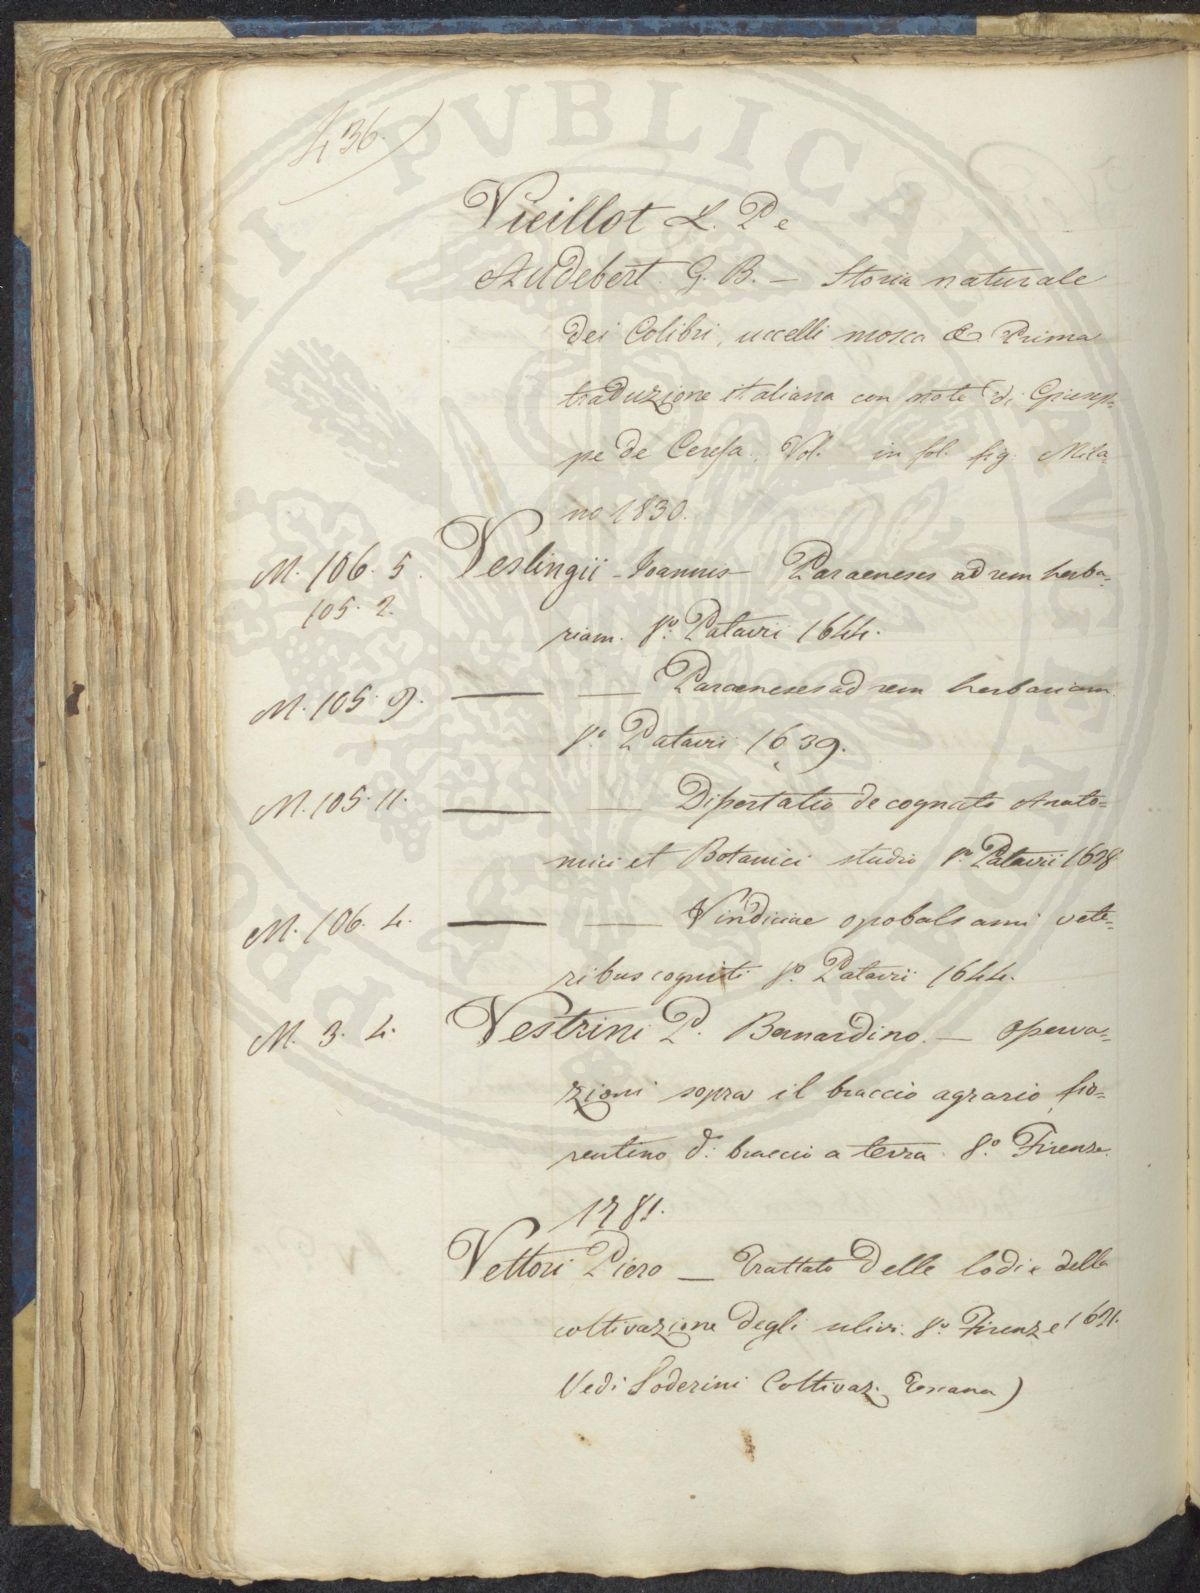 436.
Vieillot L. P. e
Audebert G. B. — Storia naturale
dei Colibri, uccelli mosca & Prima
traduzione italiana con note di Giusep-
pe de Ceresa. Vol. in fol. fig. Mila-
no 1830.
M. 106. 5. Veslingii Ioannis Paraeneses ad rem herba-
105. 2.
riam. 8.º Patavii 1644.
M. 105. 9. — — Paraeneses ad rem herbariam
8.º Patavii 1639.
M. 105. 11. — — Dissertatio de cognato Anato-
mici et Botanici studio 8.º Patavii 1638
M. 106. 4. — — Vindiciae opobalsami vete-
ribus cogniti 8.º Patavii 1644.
M. 3. 4. Vestrini P. Bernardino. — Osserva-
zioni sopra il braccio agrario fio-
rentino d: braccio a terra. 8.º Firenze.
1781.
Vettori Piero — Trattato delle lodi e della
coltivazione degli ulivi. 8.º Firenze 1621.
Vedi Soderini Coltivaz. Toscana)